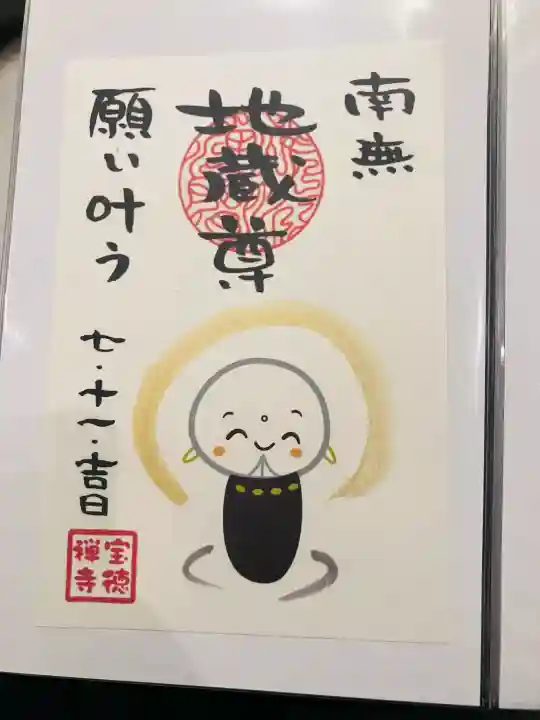 南無
地蔵尊
願い叶う
七・十一・吉日
宝徳
禅寺